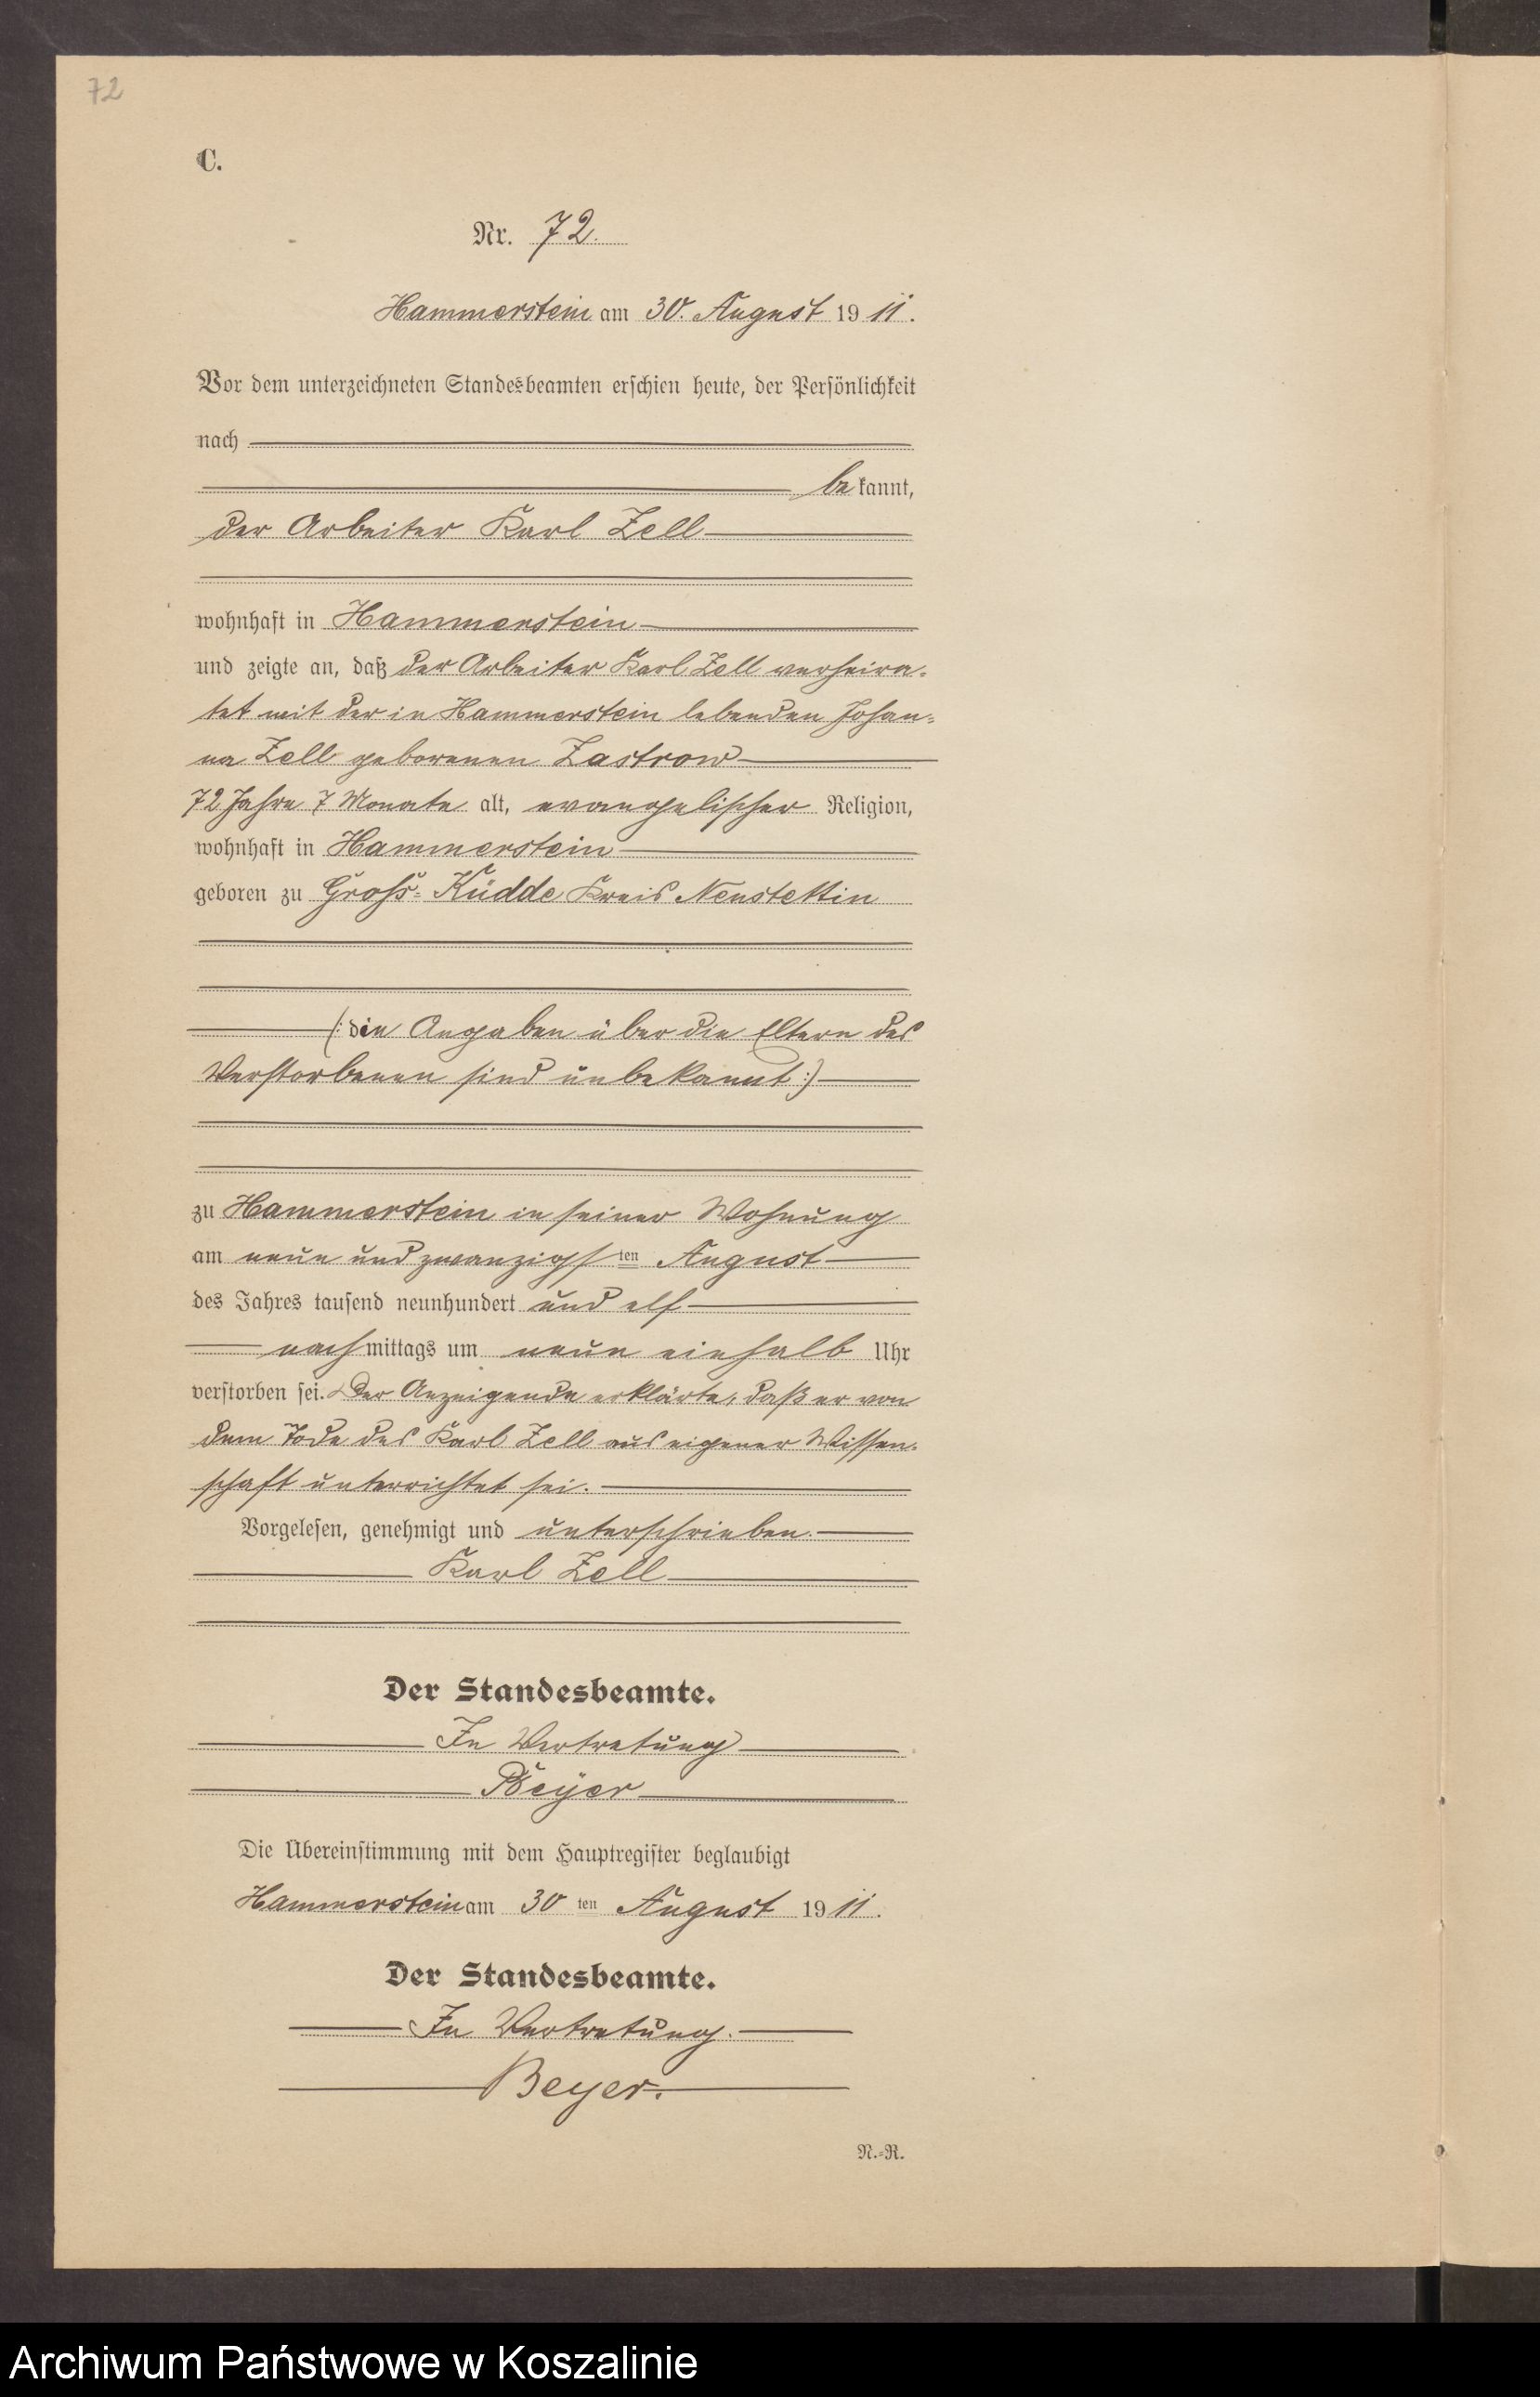 72
C.
Nr. 72.
Hammerstein am 30. August 1911.
Vor dem unterzeichneten Standesbeamten erschien heute, der Persönlichkeit
nach
bekannt,
der Arbeiter Karl Zell
wohnhaft in Hammerstein
und zeigte an, daß der Arbeiter Karl Zell verheira-
tet mit der in Hammerstein lebenden Johan-
na Zell geborenen Zastrow
72 Jahre 7 Monate alt, evangelischer Religion,
wohnhaft in Hammerstein
geboren zu Groß-Küdde Kreis Neustettin
(: die Angaben über die Eltern des
Verstorbenen sind unbekannt :)
zu Hammerstein in seiner Wohnung
am neun und zwanzigsten August
des Jahres tausend neunhundert und elf
nachmittags um neun einhalb Uhr
verstorben sei. Der Anzeigende erklärte, daß er von
dem Tode des Karl Zell aus eigener Wissen-
schaft unterrichtet sei.
Vorgelesen, genehmigt und unterschrieben.
Karl Zell
Der Standesbeamte.
In Vertretung
Beyer
Die Übereinstimmung mit dem Hauptregister beglaubigt
Hammerstein am 30ten August 1911.
Der Standesbeamte.
In Vertretung.
Beyer.
N.-R.
Archiwum Państwowe w Koszalinie